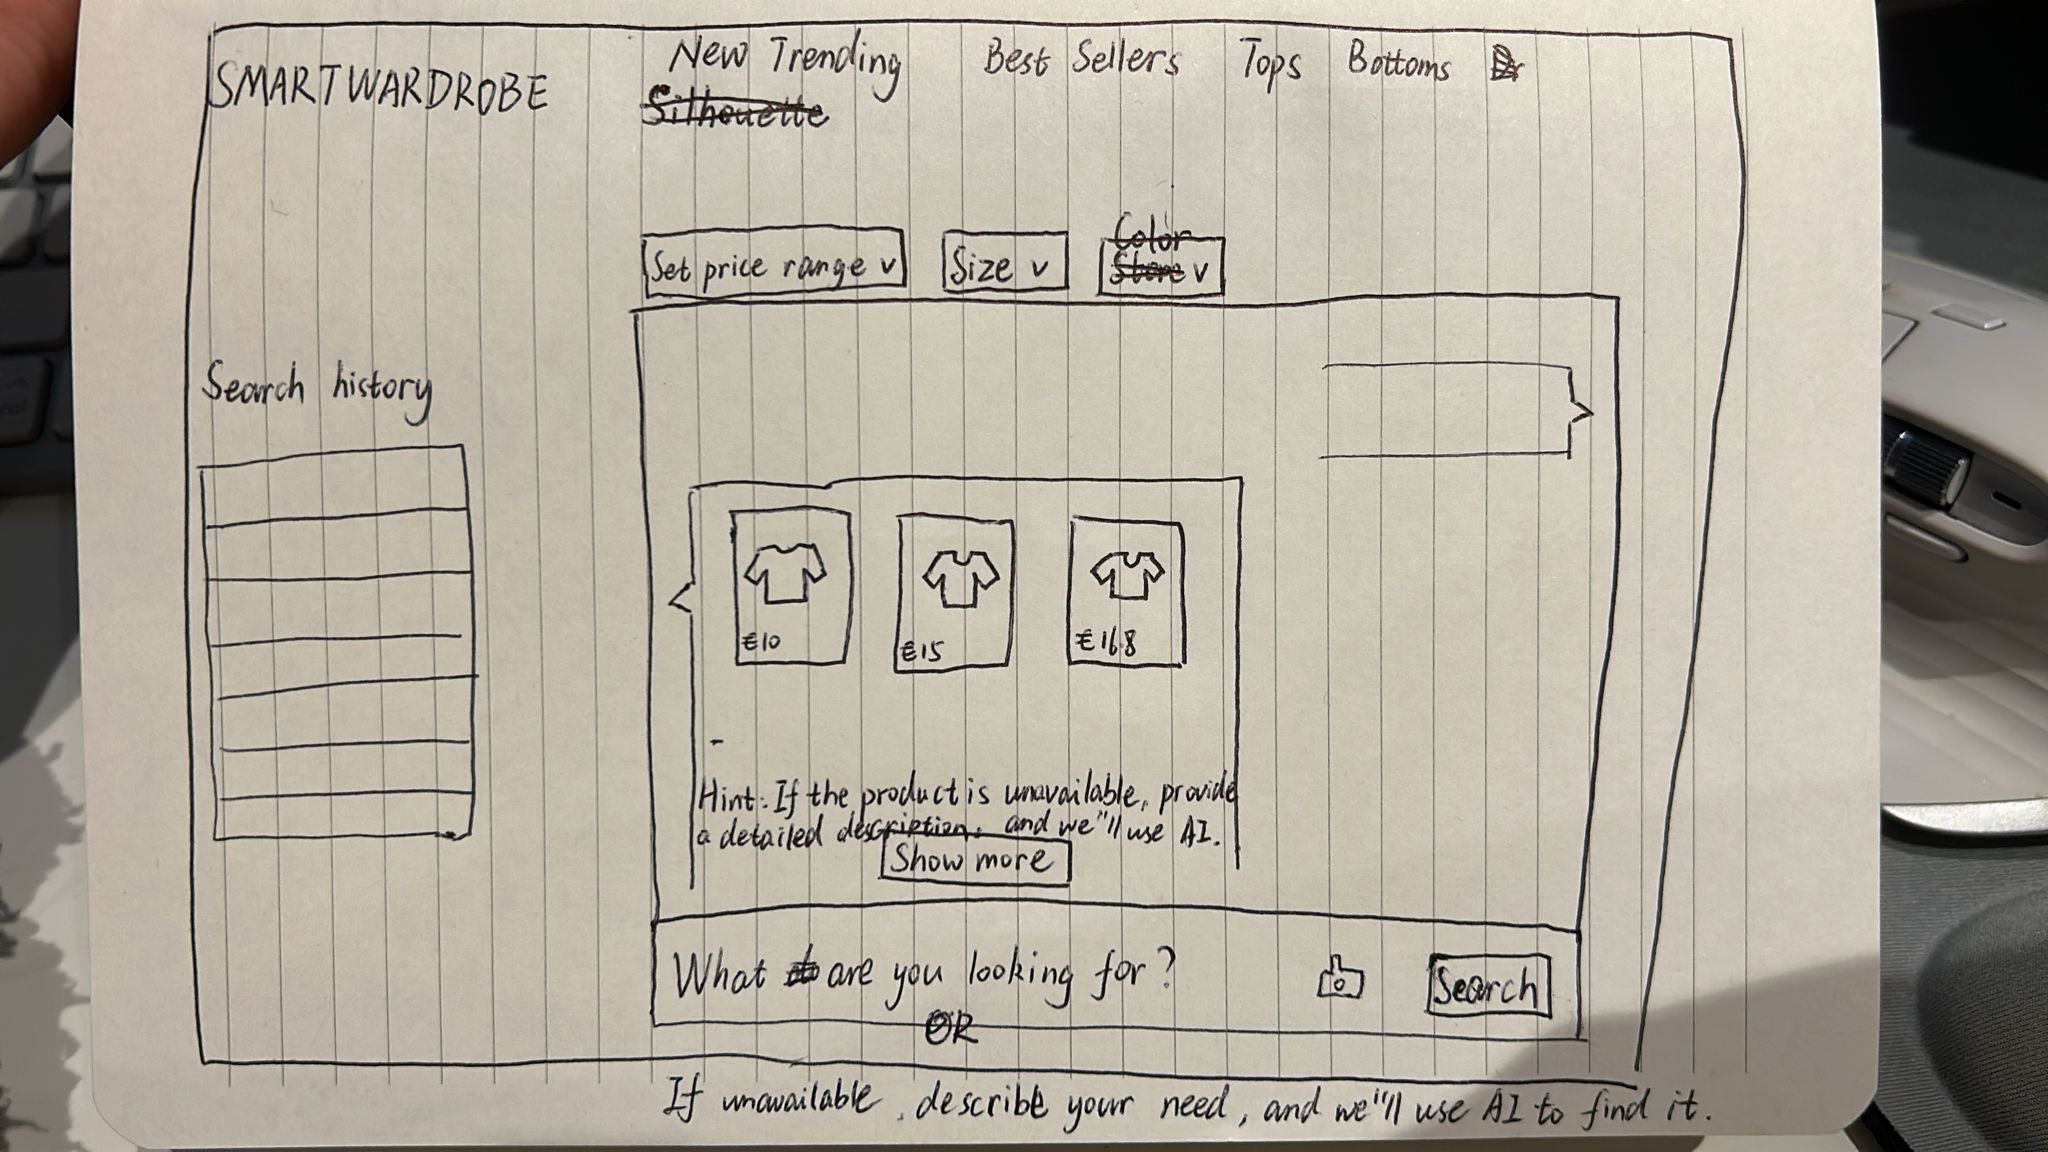 SMARTWARDROBE
New Trending
Best Sellers
Tops
Bottoms
Silhouette
Set price range v
Size v
Color
v
Search history
€10
€15
€16.8
Hint: If the product is unavailable, provide
a detailed description. and we"ll use AI.
Show more
What are you looking for?
Search
OR
If unavailable, describe your need, and we"ll use AI to find it.